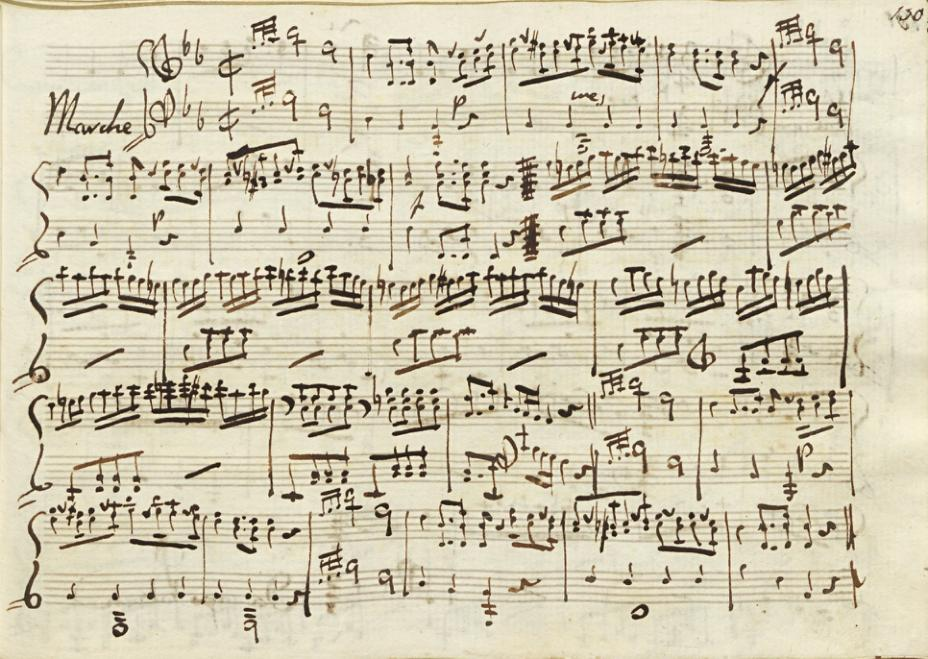 150
Marche